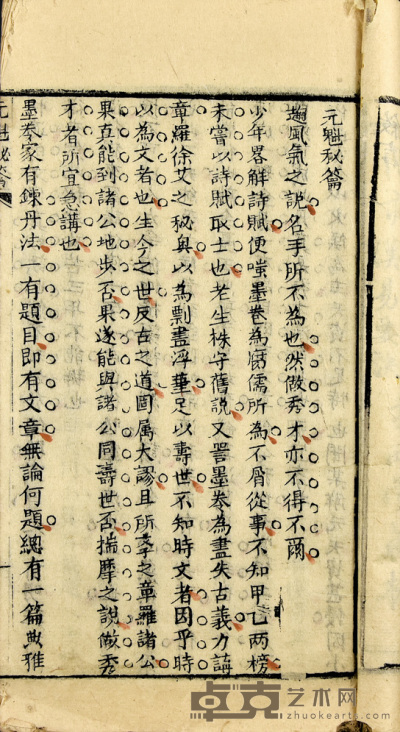 元魁秘篇
趨風氣之說名手所不為也然做秀才亦不得不爾
少年畧解詩賦便嗤墨卷為腐儒所為不屑從事不知甲乙兩榜
未嘗以詩賦取士也老生株守舊說又詈墨卷為盡失古義力講
章羅徐艾之秘奥以為剽晝浮華足以壽世不知時文者因乎時
以為文者也生今之世反古之道固属大謬且所學之章羅諸公
果真能到諸公地步否果遂能與諸公同壽世否揣摩之說做秀
才者所宜急講也
墨卷家有鍊丹法一有題目即有文章無論何題總有一篇典雅
元魁秘篇
卓克艺术网
www.zhuokearts.com